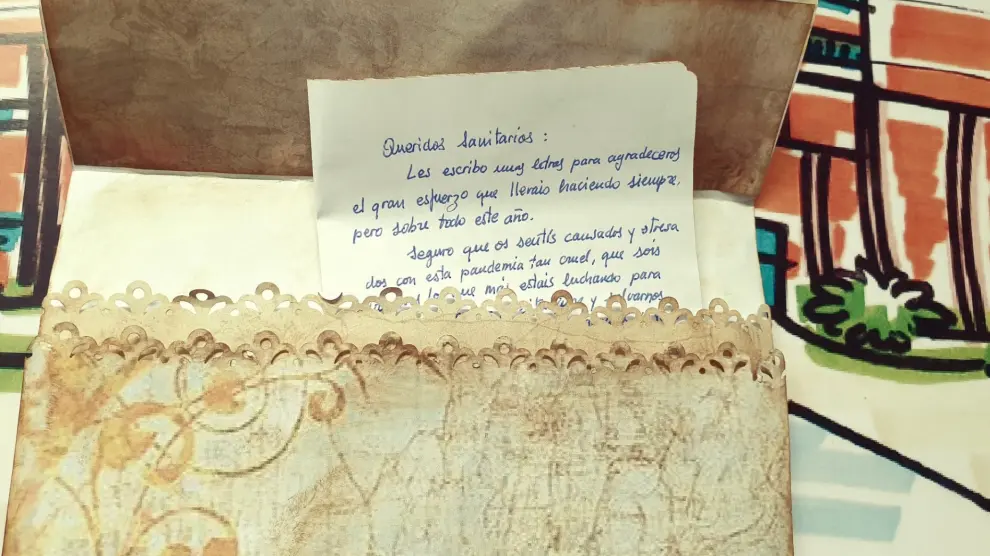 Queridos Sanitarios :
Les escribo unas letras para agradeceros
el gran esfuerzo que lleváis haciendo siempre,
pero sobre todo este año.
Seguro que os sentís causados y stresa
dos con esta pandemia tan cruel, que sois
los que más estáis luchando para
y salvarnos